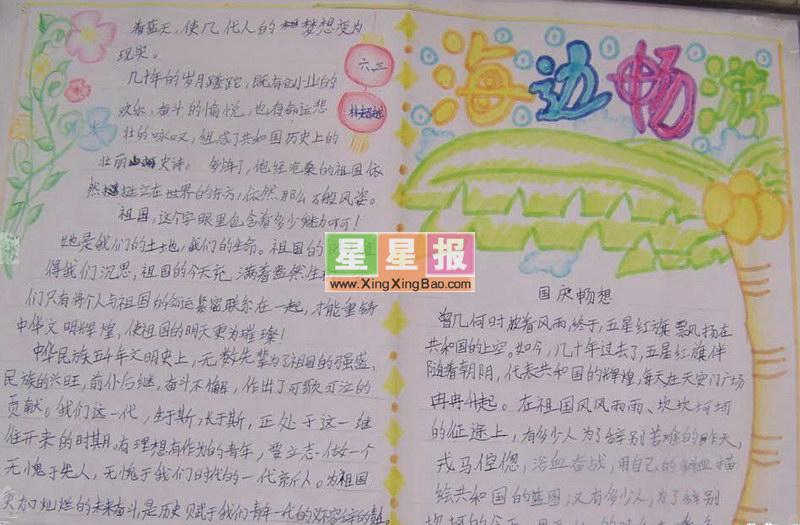 看蓝天，使几代人的梦想变为
现实。
几十年的岁月蹉跎，既有创业的
欢乐，奋斗的愉悦，也有命运悲
壮的咏叹，组成了共和国历史上的
壮丽史诗。多少年了，饱经沧桑的祖国依
然屹立在世界的东方，依然那么万般风姿。
祖国，这个字眼里包含着多少魅力啊！
她是我们的土地，我们的生命。祖国的
得我们沉思，祖国的今天充满着盎然生
们只有将个人与祖国的命运紧密联系在一起，才能重铸
中华文明辉煌，使祖国的明天更为璀璨！
中华民族五千年文明史上，无数先辈为了祖国的强盛、
民族的兴旺，前仆后继，奋斗不懈，作出了可歌可泣的
贡献。我们这一代，生于斯，长于斯，正处于这一继
往开来的时期，有理想有作为的青年，要立志做一个
无愧于先人，无愧于我们时代的一代新人。为祖国
更加灿烂的未来奋斗，是历史赋于我们青年一代的
六三
海边畅游
星星报
www.XingXingBao.com
国庆畅想
曾几何时 披着风雨，终于，五星红旗飘扬在
共和国的上空。如今，几十年过去了，五星红旗伴
随着朝阳，代表共和国的辉煌，每天在天安门广场
冉冉升起。在祖国风风雨雨、坎坎坷坷
的征途上，有多少人为了辞别苦难的昨天，
戎马倥偬，浴血奋战，用自己的鲜血描
绘共和国的蓝图；又有多少人，为了辞别
坎坷的今天，